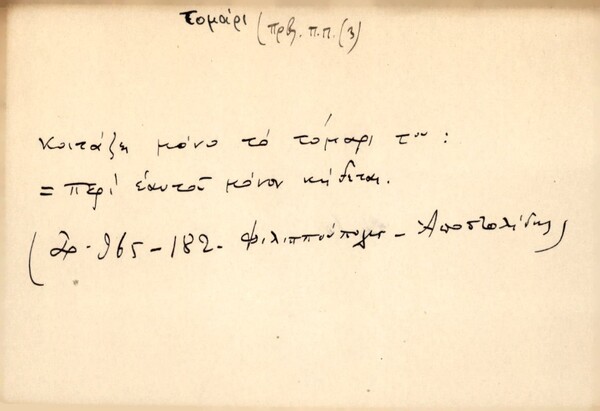 τομάρι (πρβ. π.π. (3)
Κοιτάζει μόνο τό τομάρι του :
= Περί ἑαυτοῦ μόνον κήδεται.
965 - 182. Φιλιππούπολις - Ἀποστολίδης)